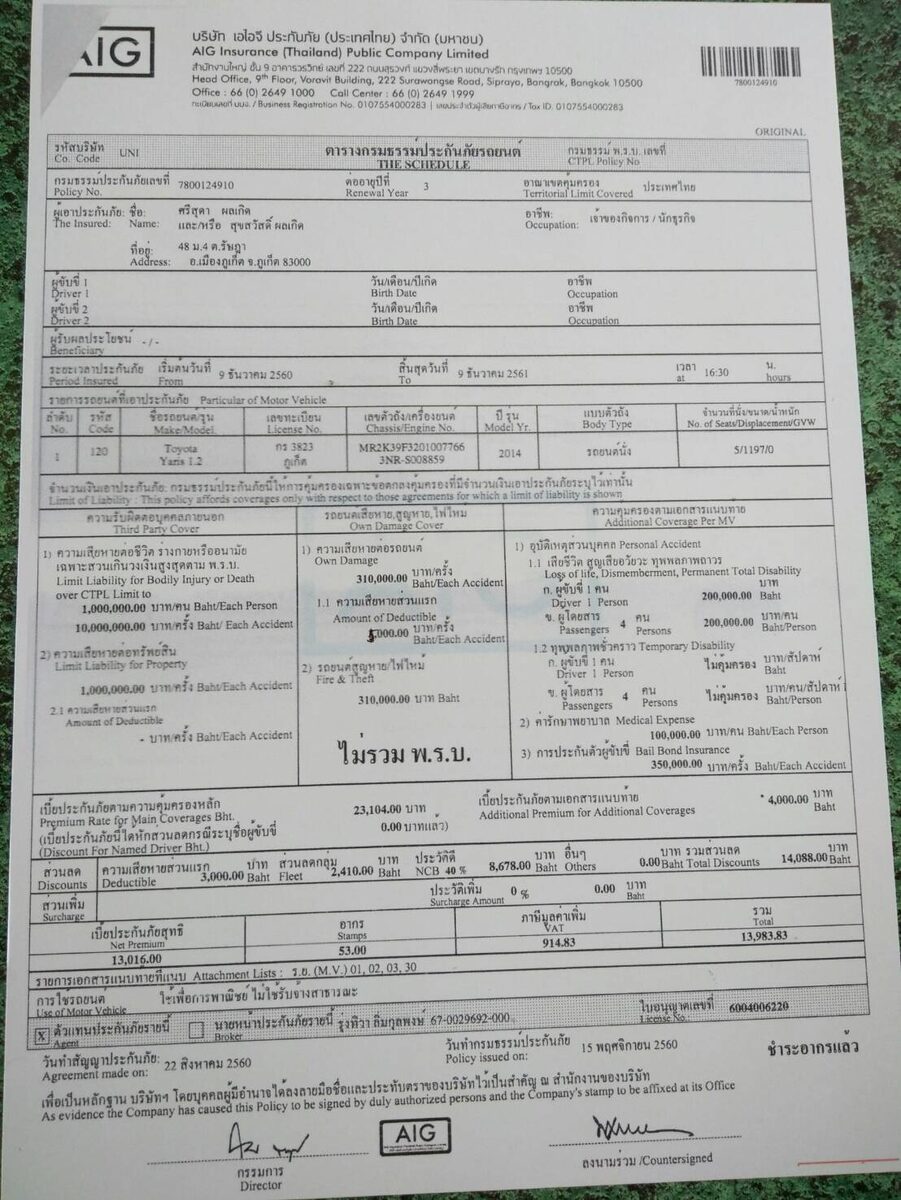 AIG
บริษัท เอไอจี ประกันภัย (ประเทศไทย) จำกัด (มหาชน)
AIG Insurance (Thailand) Public Company Limited
สำนักงานใหญ่ ชั้น 9 อาคารวรวิทย์ เลขที่ 222 ถนนสุรวงศ์ แขวงสี่พระยา เขตบางรัก กรุงเทพฯ 10500
Head Office, 9th Floor, Voravit Building, 222 Surawongse Road, Sipraya, Bangrak, Bangkok 10500
Office : 66 (0) 2649 1000 Call Center : 66 (0) 2649 1999
ทะเบียนเลขที่ บมจ. / Business Registration No. 0107554000283 | เลขประจำตัวผู้เสียภาษีอากร / Tax ID. 0107554000283
7800124910
ORIGINAL
รหัสบริษัท UNI ตารางกรมธรรม์ประกันภัยรถยนต์ กรมธรรม์ พ.ร.บ. เลขที่
Co. Code THE SCHEDULE CTPL Policy No
กรมธรรม์ประกันภัยเลขที่ 7800124910 ต่ออายุปีที่ 3 อาณาเขตคุ้มครอง ประเทศไทย
Policy No. Renewal Year Territorial Limit Covered
ผู้เอาประกันภัย: ชื่อ: ศรีสุดา ผลเกิด อาชีพ: เจ้าของกิจการ / นักธุรกิจ
The Insured: Name: และ/หรือ สุขสวัสดิ์ ผลเกิด Occupation:
ที่อยู่: 48 ม.4 ต.รัษฎา
Address: อ.เมืองภูเก็ต จ.ภูเก็ต 83000
ผู้ขับขี่ 1 วัน/เดือน/ปีเกิด อาชีพ
Driver 1 Birth Date Occupation
ผู้ขับขี่ 2 วัน/เดือน/ปีเกิด อาชีพ
Driver 2 Birth Date Occupation
ผู้รับผลประโยชน์ -/-
Beneficiary
ระยะเวลาประกันภัย เริ่มต้นวันที่ 9 ธันวาคม 2560 สิ้นสุดวันที่ 9 ธันวาคม 2561 เวลา 16:30 น.
Period Insured From To at hours
รายการรถยนต์ที่เอาประกันภัย Particular of Motor Vehicle
ลำดับ รหัส ชื่อรถยนต์/รุ่น เลขทะเบียน เลขตัวถัง/เครื่องยนต์ ปี รุ่น แบบตัวถัง จำนวนที่นั่ง/ขนาด/น้ำหนัก
No. Code Make/Model. License No. Chassis/Engine No. Model Yr. Body Type No. of Seats/Displacement/GVW
1 120 Toyota กร 3823 MR2K39F3201007766 2014 รถยนต์นั่ง 5/1197/0
Yaris 1.2 ภูเก็ต 3NR-S008859
จำนวนเงินเอาประกันภัย: กรมธรรม์ประกันภัยนี้ให้การคุ้มครองเฉพาะข้อตกลงคุ้มครองที่มีจำนวนเงินเอาประกันภัยระบุไว้เท่านั้น
Limit of Liability : This policy affords coverages only with respect to those agreements for which a limit of liability is shown
ความรับผิดต่อบุคคลภายนอก
Third Party Cover
1) ความเสียหายต่อชีวิต ร่างกายหรืออนามัย
เฉพาะส่วนเกินวงเงินสูงสุดตาม พ.ร.บ.
Limit Liability for Bodily Injury or Death
over CTPL Limit to
1,000,000.00 บาท/คน Baht/Each Person
10,000,000.00 บาท/ครั้ง Baht/ Each Accident
2) ความเสียหายต่อทรัพย์สิน
Limit Liability for Property
1,000,000.00 บาท/ครั้ง Baht/Each Accident
2.1 ความเสียหายส่วนแรก
Amount of Deductible
- บาท/ครั้ง Baht/Each Accident
รถยนต์เสียหาย,สูญหาย,ไฟไหม้
Own Damage Cover
1) ความเสียหายต่อรถยนต์
Own Damage
310,000.00 บาท/ครั้ง
Baht/Each Accident
1.1 ความเสียหายส่วนแรก
Amount of Deductible
5,000.00 บาท/ครั้ง
Baht/Each Accident
2) รถยนต์สูญหาย/ไฟไหม้
Fire & Theft
310,000.00 บาท Baht
ไม่รวม พ.ร.บ.
ความคุ้มครองตามเอกสารแนบท้าย
Additional Coverage Per MV
1) อุบัติเหตุส่วนบุคคล Personal Accident
1.1 เสียชีวิต สูญเสียอวัยวะ ทุพพลภาพถาวร
Loss of life, Dismemberment, Permanent Total Disability
ก. ผู้ขับขี่ 1 คน 200,000.00 บาท
Driver 1 Person Baht
ข. ผู้โดยสาร 4 คน 200,000.00 บาท/คน
Passengers Persons Baht/Person
1.2 ทุพพลภาพชั่วคราว Temporary Disability
ก. ผู้ขับขี่ 1 คน ไม่คุ้มครอง บาท/สัปดาห์
Driver 1 Person Baht
ข. ผู้โดยสาร 4 คน ไม่คุ้มครอง บาท/คน/สัปดาห์
Passengers Persons Baht/Person
2) ค่ารักษาพยาบาล Medical Expense
100,000.00 บาท/คน Baht/Each Person
3) การประกันตัวผู้ขับขี่ Bail Bond Insurance
350,000.00 บาท/ครั้ง Baht/Each Accident
เบี้ยประกันภัยตามความคุ้มครองหลัก 23,104.00 บาท เบี้ยประกันภัยตามเอกสารแนบท้าย 4,000.00 บาท
Premium Rate for Main Coverages Bht. Additional Premium for Additional Coverages Baht
(เบี้ยประกันภัยนี้ได้หักส่วนลดกรณีระบุชื่อผู้ขับขี่ 0.00 บาทแล้ว)
(Discount For Named Driver Bht.)
ส่วนลด ความเสียหายส่วนแรก บาท ส่วนลดกลุ่ม บาท ประวัติดี บาท อื่นๆ บาท รวมส่วนลด บาท
Discounts Deductible 3,000.00 Baht Fleet 2,410.00 Baht NCB 40 % 8,678.00 Baht Others 0.00 Baht Total Discounts 14,088.00 Baht
ส่วนเพิ่ม ประวัติเพิ่ม 0 % 0.00 บาท
Surcharge Surcharge Amount Baht
เบี้ยประกันภัยสุทธิ อากร ภาษีมูลค่าเพิ่ม รวม
Net Premium Stamps VAT Total
13,016.00 53.00 914.83 13,983.83
รายการเอกสารแนบท้ายที่แนบ Attachment Lists : ร.ย. (M.V.) 01, 02, 03, 30
การใช้รถยนต์ ใช้เพื่อการพาณิชย์ ไม่ใช้รับจ้างสาธารณะ
Use of Motor Vehicle
X ตัวแทนประกันภัยรายนี้ นายหน้าประกันภัยรายนี้ รุ่งทิวา ลิ่มกุลพงษ์ 67-0029692-000 ใบอนุญาตเลขที่ 6004006220
Agent Broker License No.
วันทำสัญญาประกันภัย: 22 สิงหาคม 2560 วันทำกรมธรรม์ประกันภัย 15 พฤศจิกายน 2560 ชำระอากรแล้ว
Agreement made on: Policy issued on:
เพื่อเป็นหลักฐาน บริษัทฯ โดยบุคคลผู้มีอำนาจได้ลงลายมือชื่อและประทับตราของบริษัทไว้เป็นสำคัญ ณ สำนักงานของบริษัท
As evidence the Company has caused this Policy to be signed by duly authorized persons and the Company's stamp to be affixed at its Office
AIG
กรรมการ
Director
ลงนามร่วม /Countersigned